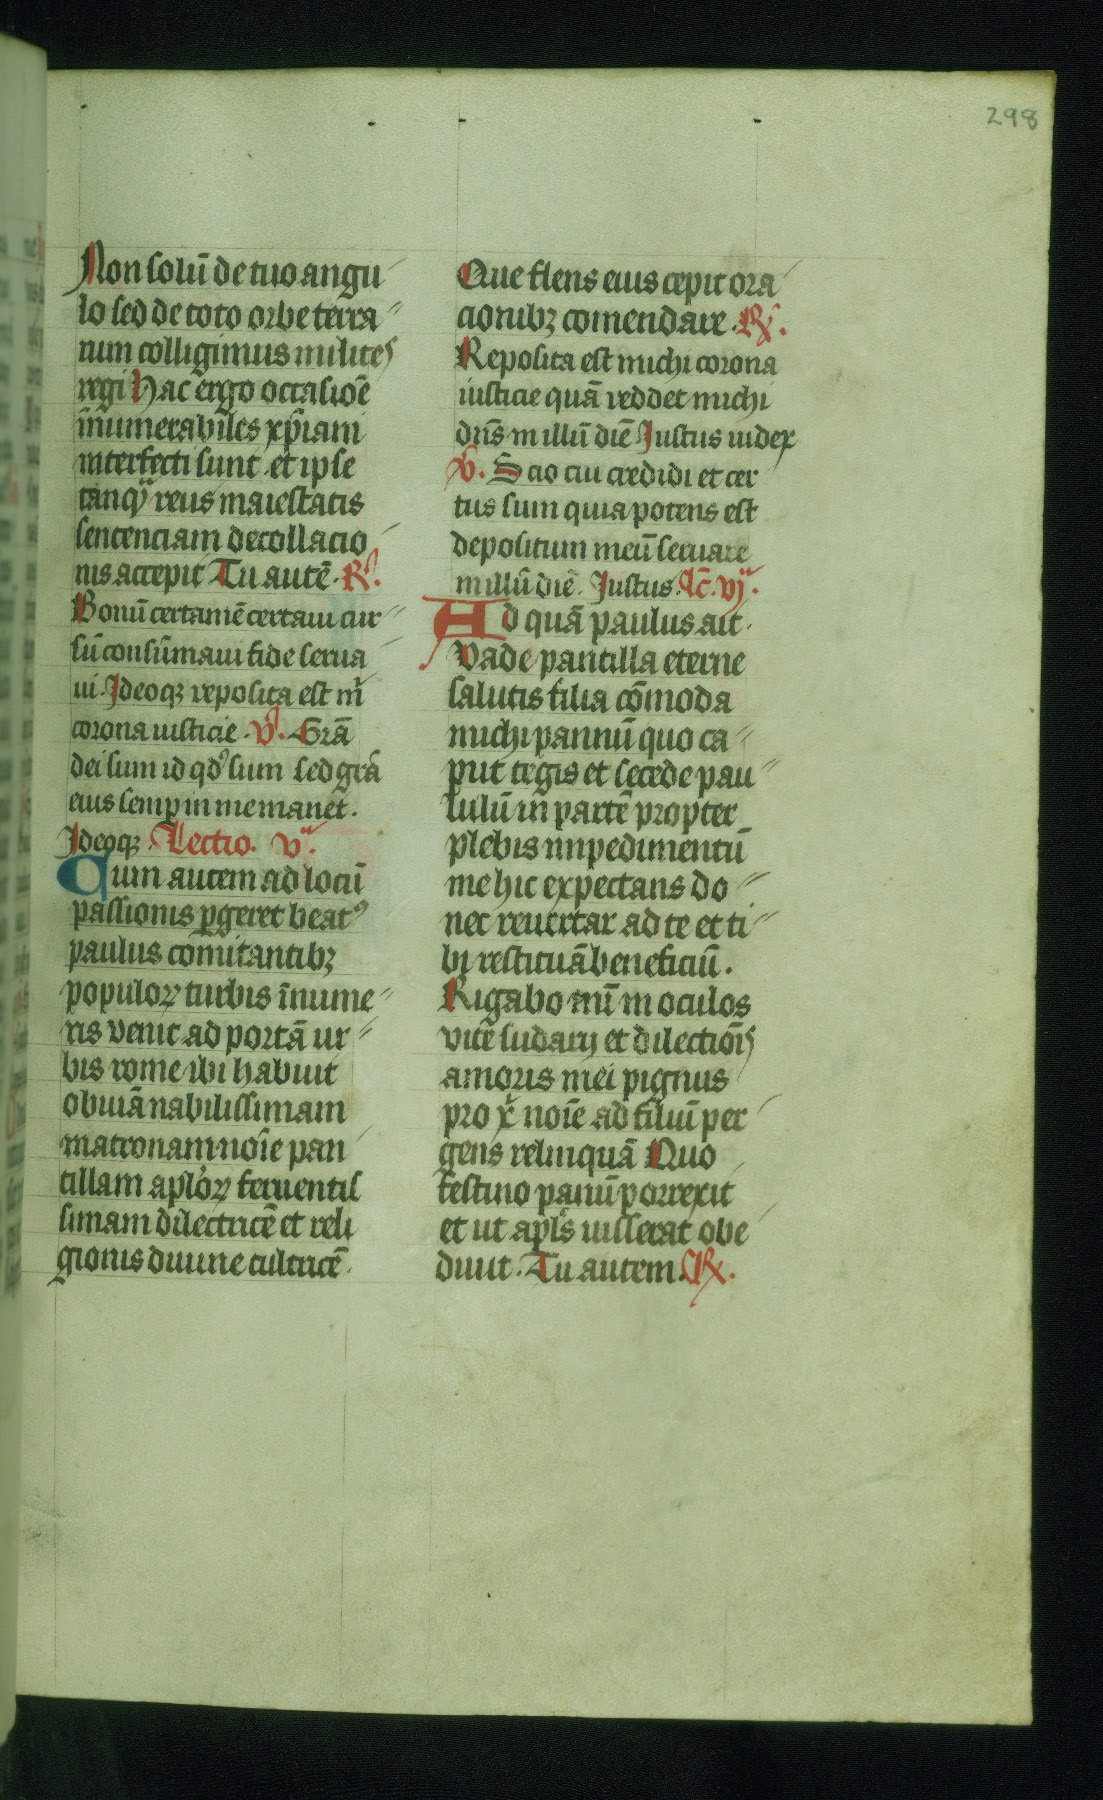 298
Non solū de tuo angu
lo sed de toto orbe terra
rum colligimus milites
regi Hac ergo occasiōe
īnumerabiles xp̄iani
interfecti sunt et ipse
tanq̄ reus maiestatis
sentenciam decollacio
nis accepit Tu autē. R̸.
Bonū certamē certaui cur
sū consūmaui fide serua
ui. Ideoqꝫ reposita est m̄
corona iusticie. V̸. Grā
dei sum id qd̄ sum sed grā
eius semꝑ in me manet.
Ideoqꝫ. Lectio. va.
Cum autem ad locū
passionis ꝑgeret beatꝰ
paulus comitantibꝫ
populoꝝ turbis īnume
ris venit ad portā ur
bis rome ibi habuit
obuiā nabilissimam
matronam noīe pan
tillam aplōꝝ feruentis
simam dilectricē et reli
gionis diuine cultricē
Que flens eius cepit ora
cionibꝫ comendare. R̸.
Reposita est michi corona
iusticie quā reddet michi
dn̄s in illū diē Iustus iudex
V̸. Scio cui credidi et cer
tus sum quia potens est
depositum meū seruare
in illū diē. Iustus. Lc̄. vja.
Ad quā paulus ait.
Vade pantilla eterne
salutis filia cōmoda
michi pannū quo ca
put tegis et secede pau
lulū in partē propter
plebis inpedimentū
me hic expectans do
nec reuertar ad te et ti
bi restituā beneficiū.
Rigabo m̄ in oculos
vice sudarij et dilectiōis
amoris mei pignus
pro x̄ noīe ad filiū per
gens relinquā Quo
festino panū porrexit
et ut apl̄s iusserat obe
diuit. Tu autem. R̸.